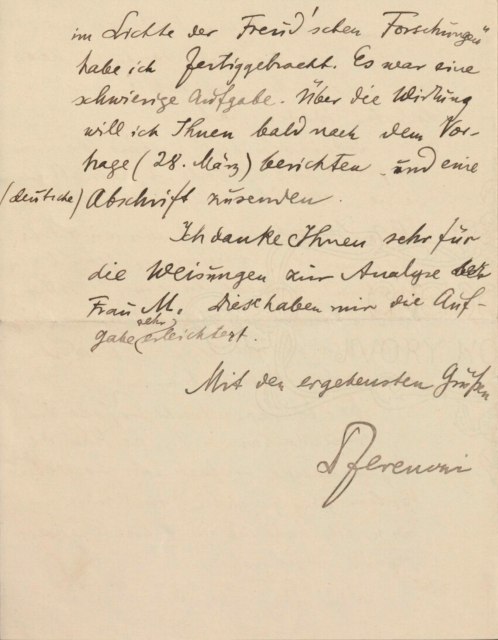 im Lichte der Freud'schen Forschungen"
habe ich fertiggebracht. Es war eine
schwierige Aufgabe. Über die Wirkung
will ich Ihnen bald nach dem Vor-
trage (28. März) berichten und eine
(deutsche) Abschrift zusenden.
Ich danke Ihnen sehr für
die Weisungen zur Analyse der
Frau M. Dieselben haben mir die Auf-
gabe sehr erleichtert.
Mit den ergebensten Grüßen
Dr Ferenczi